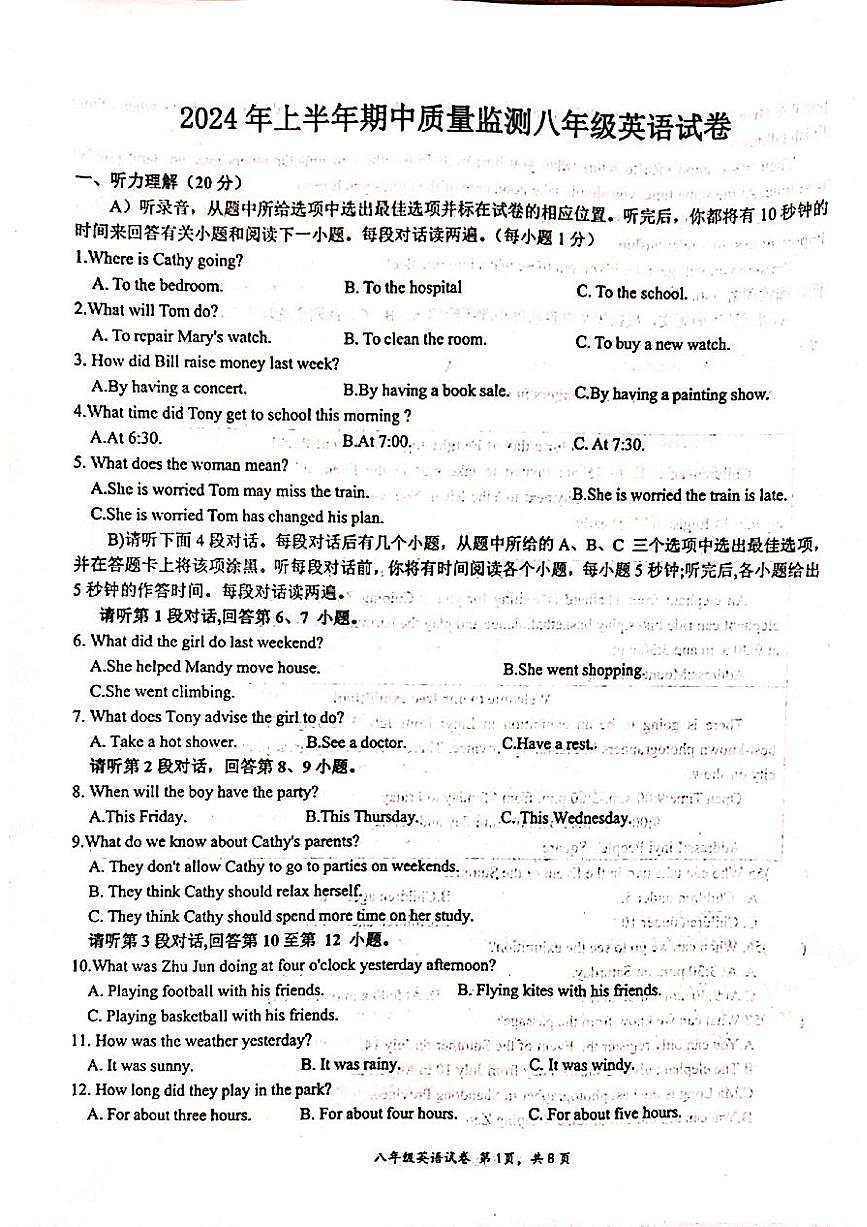 2024年上半年期中质量监测八年级英语试卷
一、听力理解（20分）
A）听录音，从题中所给选项中选出最佳选项并标在试卷的相应位置。听完后，你都将有10秒钟的
时间来回答有关小题和阅读下一小题。每段对话读两遍。（每小题1分）
1.Where is Cathy going?
A. To the bedroom. B. To the hospital C. To the school.
2.What will Tom do?
A. To repair Mary's watch. B. To clean the room. C. To buy a new watch.
3. How did Bill raise money last week?
A.By having a concert. B.By having a book sale. C.By having a painting show.
4.What time did Tony get to school this morning ?
A.At 6:30. B.At 7:00. C. At 7:30.
5. What does the woman mean?
A.She is worried Tom may miss the train. B.She is worried the train is late.
C.She is worried Tom has changed his plan.
B)请听下面4段对话。每段对话后有几个小题，从题中所给的A、B、C 三个选项中选出最佳选项，
并在答题卡上将该项涂黑。听每段对话前，你将有时间阅读各个小题，每小题5秒钟;听完后,各小题给出
5秒钟的作答时间。每段对话读两遍。
请听第1段对话,回答第6、7 小题。
6. What did the girl do last weekend?
A.She helped Mandy move house. B.She went shopping.
C.She went climbing.
7. What does Tony advise the girl to do?
A. Take a hot shower. B.See a doctor. C.Have a rest.
请听第2段对话，回答第8、9小题。
8. When will the boy have the party?
A.This Friday. B.This Thursday. C. This Wednesday.
9.What do we know about Cathy's parents?
A. They don't allow Cathy to go to parties on weekends.
B. They think Cathy should relax herself.
C. They think Cathy should spend more time on her study.
请听第3段对话,回答第10至第 12 小题。
10.What was Zhu Jun doing at four o'clock yesterday afternoon?
A. Playing football with his friends. B. Flying kites with his friends.
C. Playing basketball with his friends.
11. How was the weather yesterday?
A. It was sunny. B. It was rainy. C. It was windy.
12. How long did they play in the park?
A. For about three hours. B. For about four hours. C. For about five hours.
八年级英语试卷 第1页，共8页